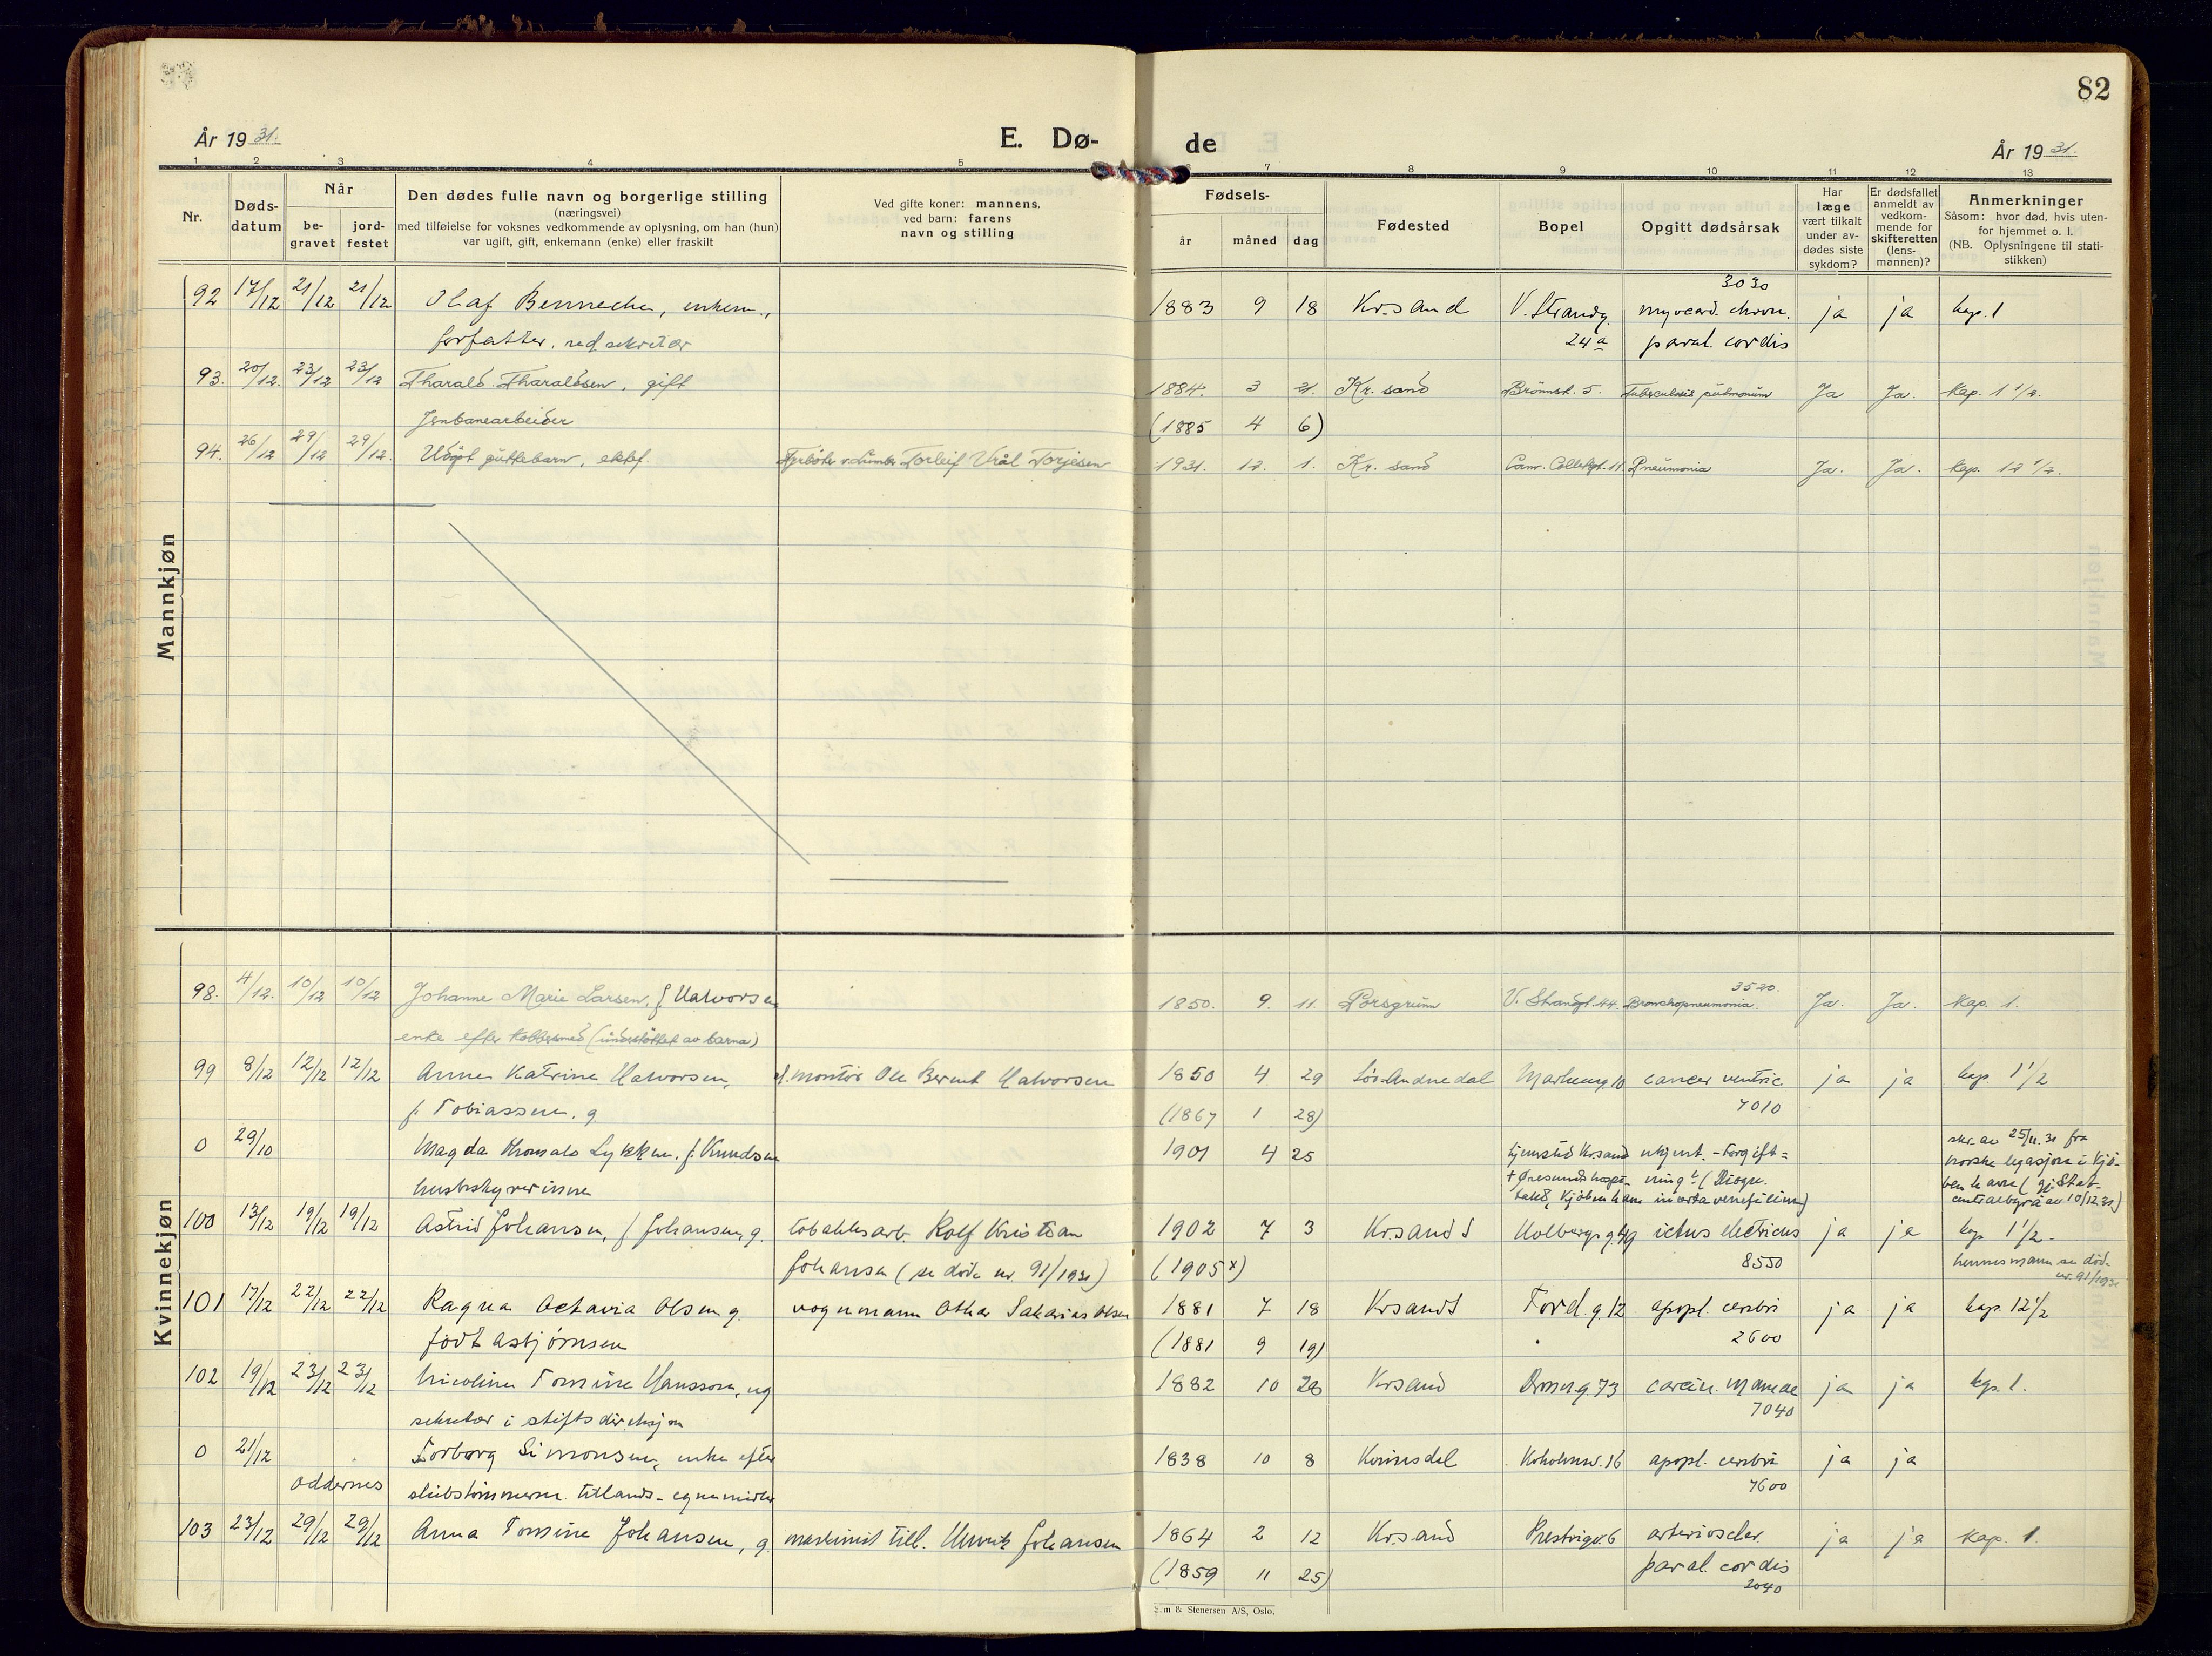 82
År 1931.
E. Dø-
de
År 1931.
1 2 3 4 5 6 7 8 9 10 11 12 13
Nr.
Døds-
datum
Når
be-
gravet
jord-
festet
Den dødes fulle navn og borgerlige stilling
(næringsvei)
med tilføielse for voksnes vedkommende av oplysning, om han (hun)
var ugift, gift, enkemann (enke) eller fraskilt
Ved gifte koner: mannens,
ved barn: farens
navn og stilling
Fødsels-
år
måned
dag
Fødested
Bopel
Opgitt dødsårsak
Har
læge
vært tilkalt
under av-
dødes siste
sykdom?
Er dødsfallet
anmeldt av
vedkom-
mende for
skifteretten
(lens-
mannen)?
Anmerkninger
Såsom: hvor død, hvis uten-
for hjemmet o. l.
(NB. Oplysningene til stati-
stikken)
Mannkjøn
3030
92 17/12 21/12 21/12 Olaf Benneche, enkem., 1883 9 18 Kr.sand V. Strandg. myocard. chron. ja ja kap. 1
forfatter, red.sekretær 24a paral. cordis
93. 20/12. 23/12 23/12 Tharald Tharaldsen, gift 1884. 3 21. Kr. sand Brønnst. 5. Tuberculosis pulmonum Ja Ja. Kap. 1 1/2.
Jernbanearbeider (1885 4 6)
94. 26/12 29/12 29/12. Udøpt guttebarn, ektef. Torleif Vrål Torjesen 1931. 12. 1. Kr. sand Cam. Colletsgt. 11 Pneumonia Ja. Ja. Kap. 12 1/2.
Kvinnekjøn
3520.
98. 4/12. 10/12 10/12 Johanne Marie Larsen, f Halvorsen 1850. 9. 11. Porsgrunn V. Strandgt. 44. Bronchopneumonia. Ja. Ja. Kap. 1.
enke efter kobbersmed (understøttet av barna)
99 8/12 12/12 12/12 Anne Katrine Halvorsen, montør Ole Bernt Halvorsen 1850 4 29 Markeng 10 cancer ventric ja ja kap. 1 1/2
f. Tobiassen, g. (1867 1 28) 7010
0 29/10 Magda Lykken, f. Knudsen 1901 4 25 hjemsted Krsand ukjent. - Forgift= skr. av 25/11.31 fra
husbestyrerinne + Øresundshospi- ning? (Diagn. norske legasjon i Kjø-
talet, Kjøbenhavn incerta veneficium) benhavn (gj Stat.
centralbyrå av 10/12 31)
100 13/12 19/12 19/12 Astrid Johansen, f Johansen, g. tobakksarb. Rolf Kristian 1902 7 3 Kr.sand S Holbergs g. 49 ictus electricus ja ja kap 1 1/2 -
Johansen (se døde nr. 91/1931) (1905 x) 8550 hennes mann se død-
nr. 91/1931
101 17/12 22/12 22/12 Ragna Octavia Olsen g. vognmann Othar Sakarias Olsen 1881 7 18 Krsand S Tord. g. 12 apopl. cerebri ja ja kap. 12 1/2
født Asbjørnsen (1881 9 19) 2600
102 19/12 23/12 23/12 Nicoline Tomine Hansson, ug 1882 10 28 Krsand Dronn g. 73 carcin. mamae ja ja kap. 1.
sekretær i stiftsdireksjon 7040
0 21/12 Torborg Simonsen, enke efter 1838 10 8 Kvinesdal Koholmsv. 16 apopl. cerebri ja ja
oddernes skibstømmerm. 7600
103 23/12 29/12 29/12 Anna Tomine Johansen, g. maskinist Henrik Johansen 1864 2 12 Kr.sand Prestvigv. 6 arterioscler. ja ja kap. 1.
(1859 11 25) paral. cordis
2040
& Stenersen A/S, Oslo.